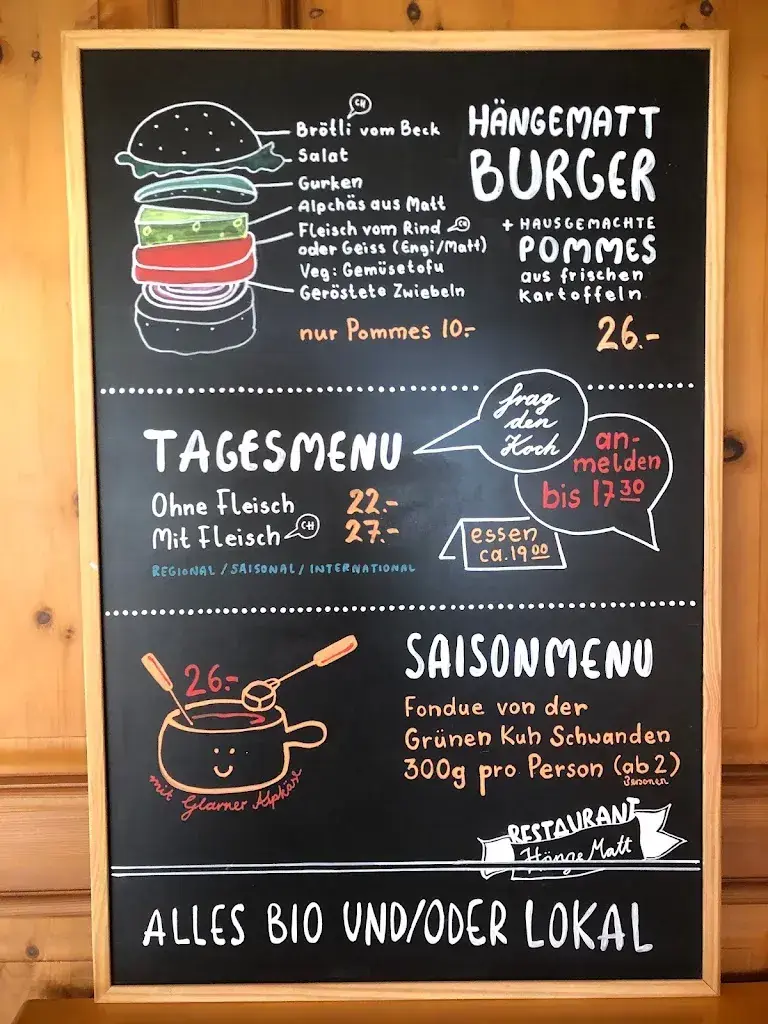 CH
Brötli vom Beck
Salat
Gurken
Alpchäs aus Matt
Fleisch vom Rind CH
oder Geiss (Engi/Matt)
Veg: Gemüsetofu
Geröstete Zwiebeln
nur Pommes 10.-
HÄNGEMATT
BURGER
+ HAUSGEMACHTE
POMMES
aus frischen
Kartoffeln
26.-
TAGESMENU
Ohne Fleisch 22.-
Mit Fleisch CH 27.-
REGIONAL / SAISONAL / INTERNATIONAL
frag
den
Koch
an-
melden
bis 17 30
essen
ca. 19 00
26.-
mit Glarner Alpkäse
SAISONMENU
Fondue von der
Grünen Kuh Schwanden
300g pro Person (ab 2)
Personen
RESTAURANT
Hänge Matt
ALLES BIO UND/ODER LOKAL